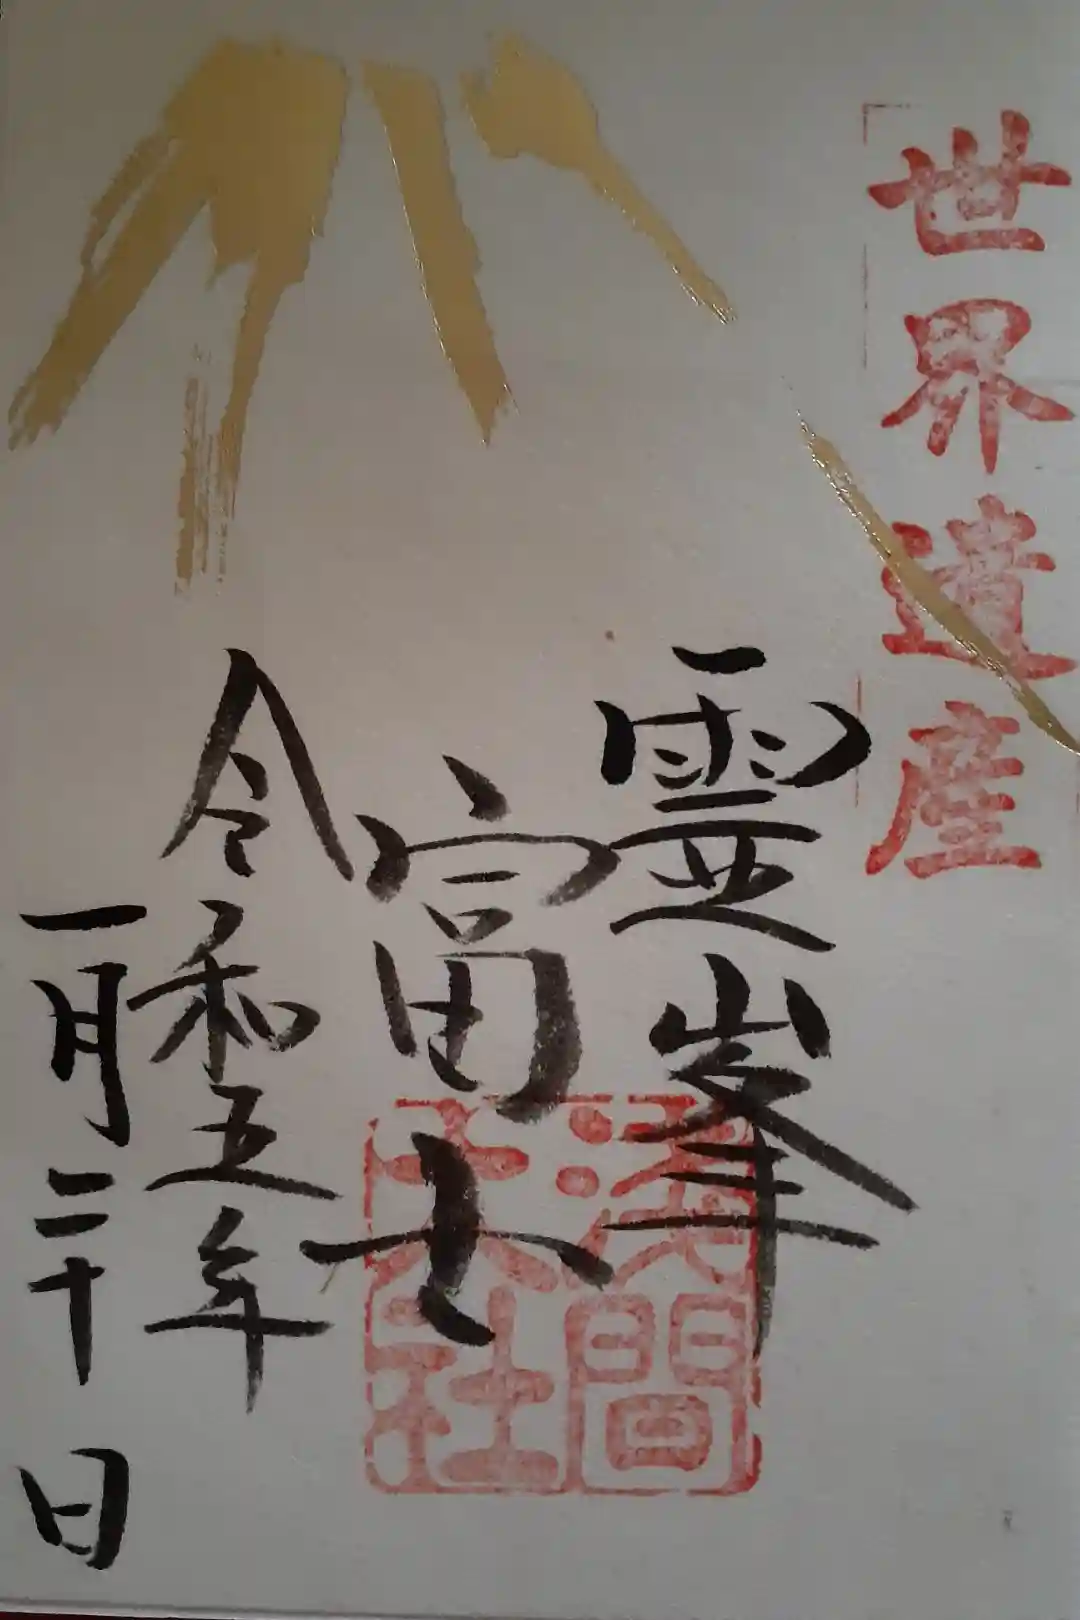 世界遺産
霊峯
富士
令和五年
一月二十日
浅間
大社